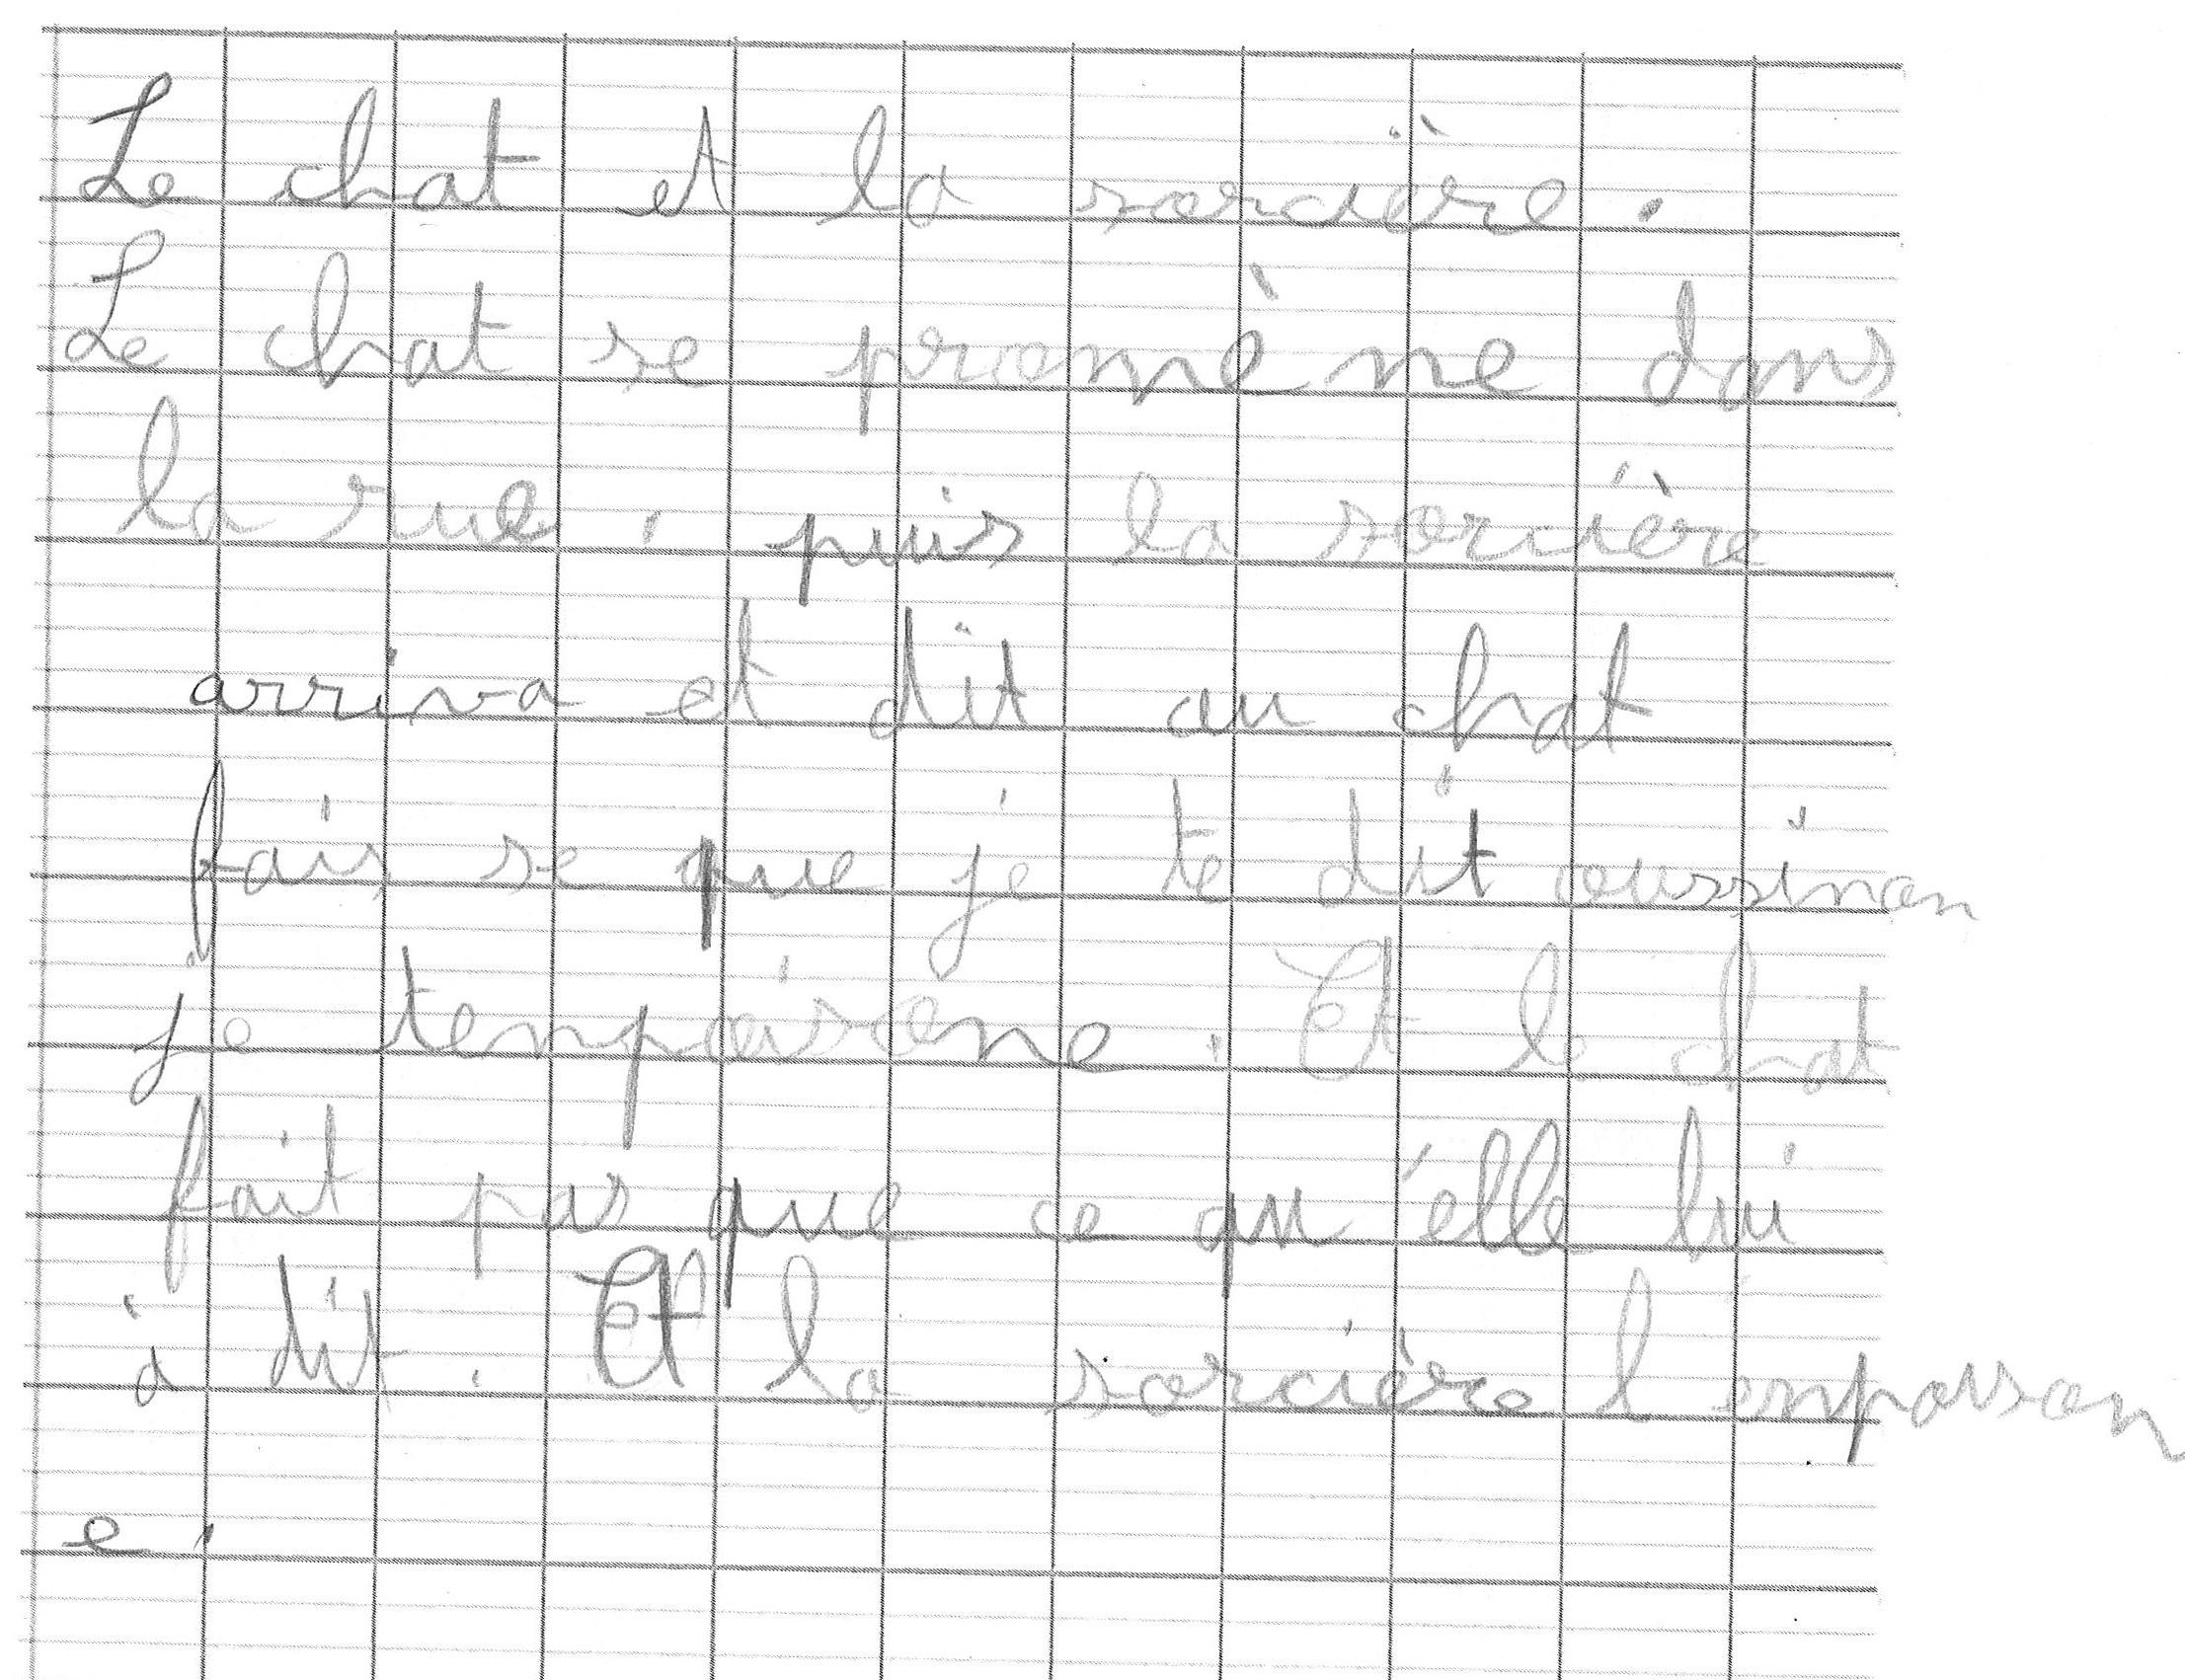 Le chat et la sorcière.
Le chat se promène dans
la rue. puis la sorcière
arriva et dit au chat
fais se que je te dit oussinon
je tenpoisone. Et le chat
fait pas que ce qu'elle lui
à dit. Et la sorcière l'enpoison
e.